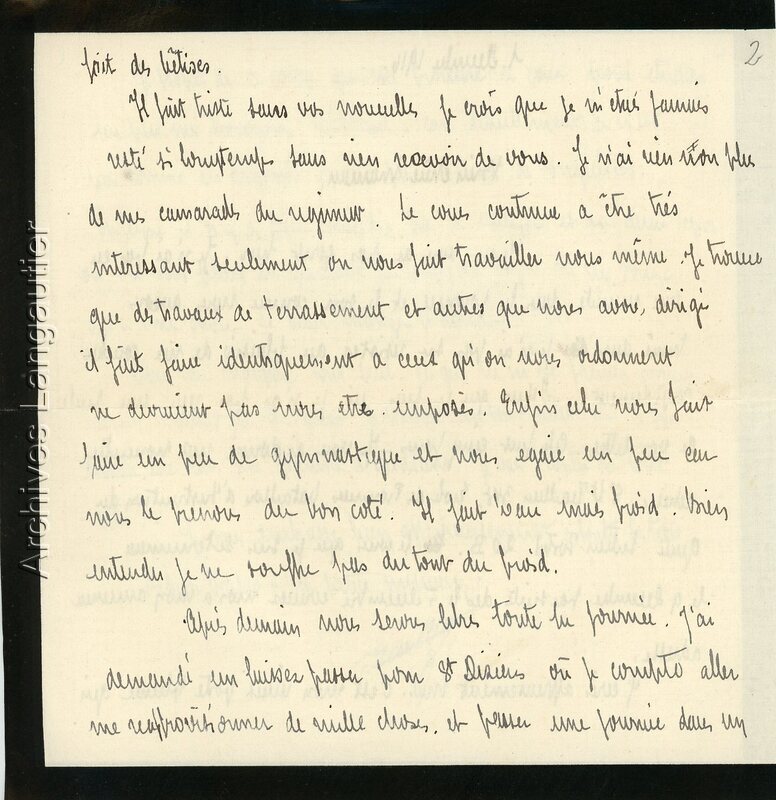 2
fait des bêtises.
Il fait triste sans vos nouvelles je crois que je n'étais jamais
resté si longtemps sans rien recevoir de vous. Je n'ai rien non plus
de mes camarades du regiment. Le cours continue a être très
interessant seulement on nous fait travailler nous même. Je trouve
que des travaux de terrassement et autres que nous avons dirigé
il faut faire identiquement a ceux qu'on nous ordonnent
ne devraient pas nous etre imposés. Enfin cela nous fait
faire un peu de gymnastique et nous egaie un peu car
nous le prenons du bon coté. Il fait beau mais froid. Bien
entendu je ne souffre pas du tout du froid.
Après demain nous serons libres toute la journée. J'ai
demandé un laissez passer pour St Diziers où je compte aller
me réapprovisionner de mille choses. et passer une journée dans un
Archives Langautier